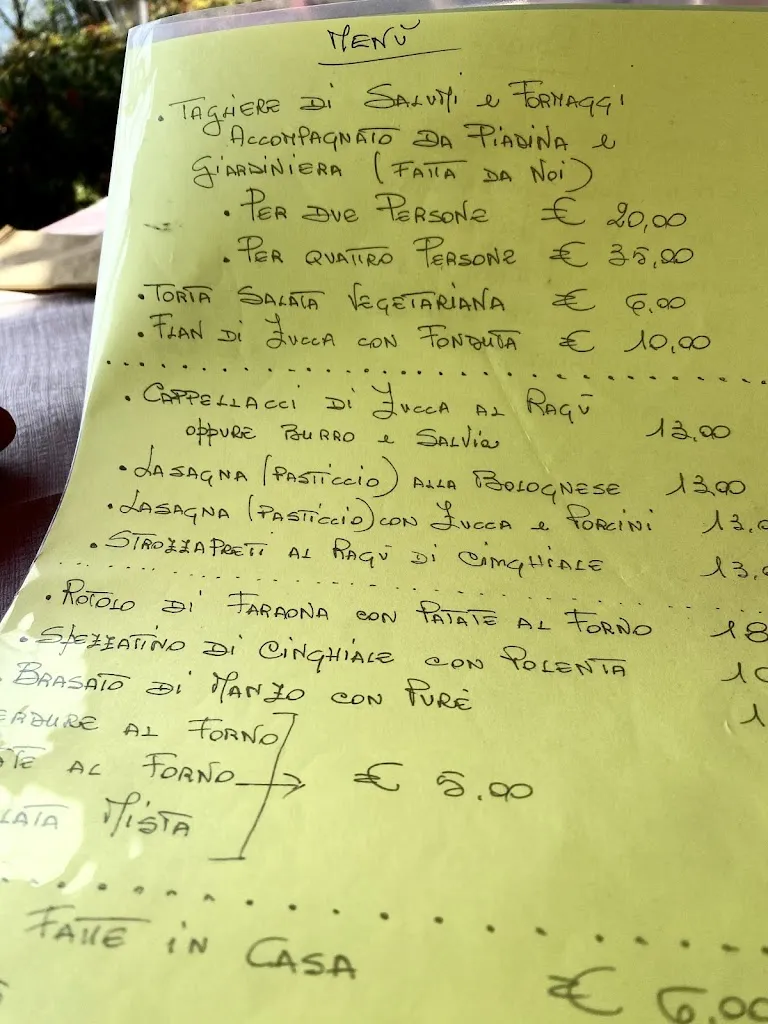 MENÙ
• TAGLIERE DI SALUMI e FORMAGGI
ACCOMPAGNATO DA PIADINA e
GIARDINIERA (FATTA DA NOI)
• PER DUE PERSONE € 20,00
• PER QUATTRO PERSONE € 35,00
• TORTA SALATA VEGETARIANA € 6,00
• FLAN DI ZUCCA CON FONDUTA € 10,00
• CAPPELLACCI DI ZUCCA AL RAGÙ
OPPURE BURRO e SALVIA 13,00
• LASAGNA (PASTICCIO) ALLA BOLOGNESE 13,00
• LASAGNA (PASTICCIO) CON ZUCCA e PORCINI 13,0
• STROZZAPRETI AL RAGÙ DI CINGHIALE 13,0
• ROTOLO DI FARAONA CON PATATE AL FORNO 18
• SPEZZATINO DI CINGHIALE CON POLENTA
• BRASATO DI MANZO CON PURÈ 1
ERDURE AL FORNO
ATE AL FORNO → € 5,00
LATA MISTA
FATTE IN CASA € 6,00